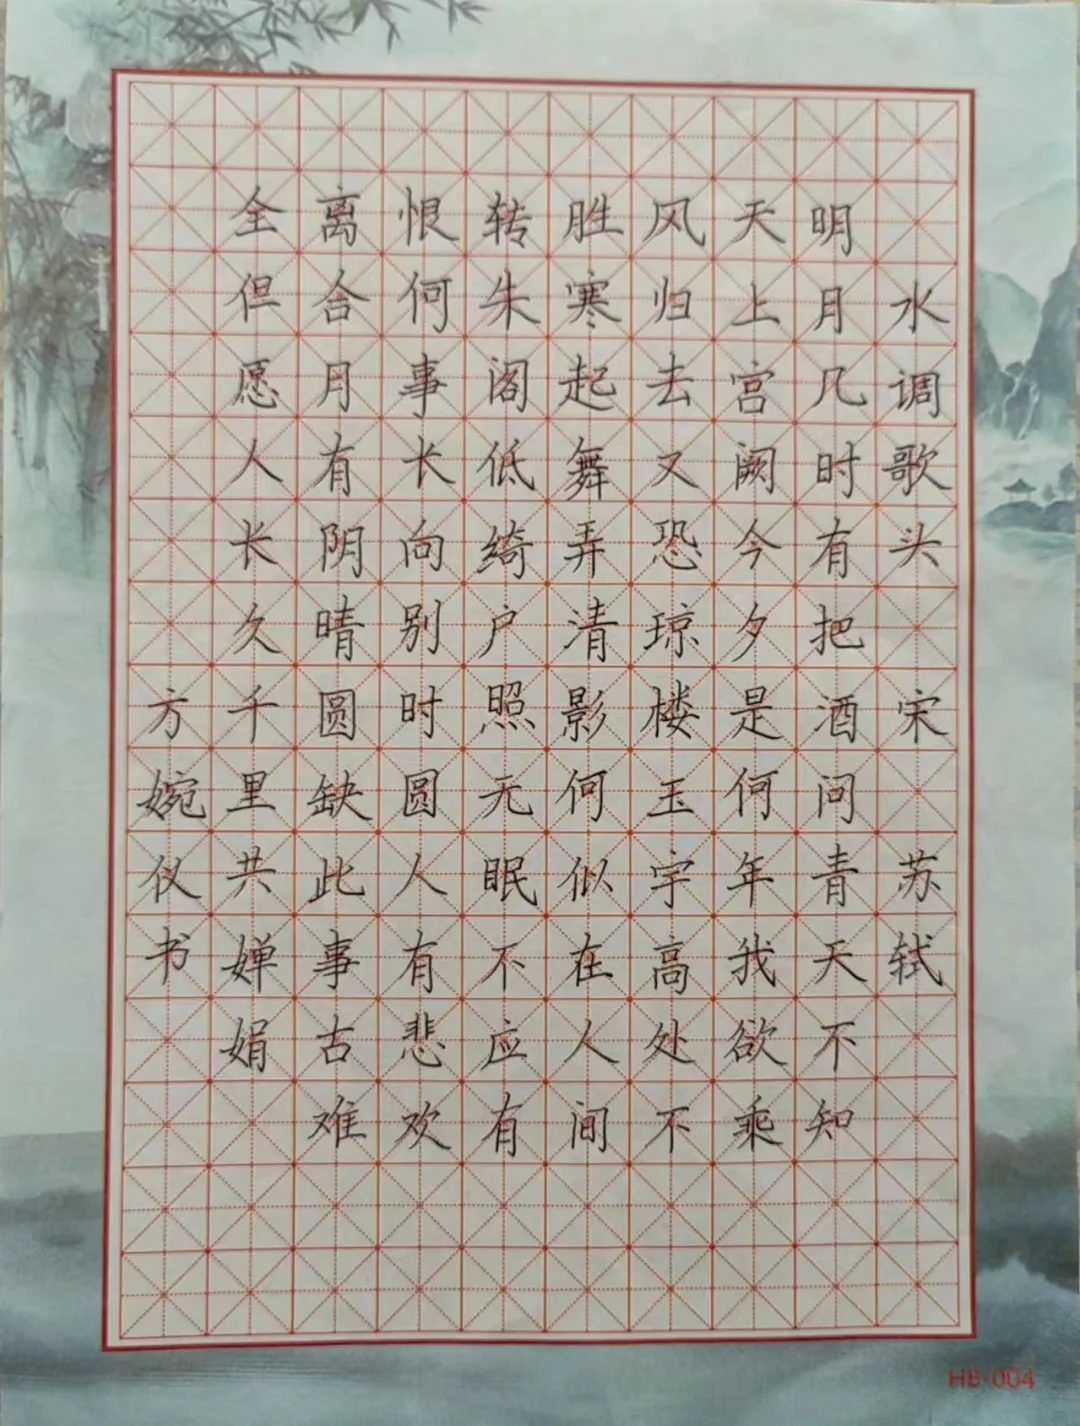 水调歌头 宋 苏轼
明月几时有把酒问青天不知
天上宫阙今夕是何年我欲乘
风归去又恐琼楼玉宇高处不
胜寒起舞弄清影何似在人间
转朱阁低绮户照无眠不应有
恨何事长向别时圆人有悲欢
离合月有阴晴圆缺此事古难
全但愿人长久千里共婵娟
方婉仪书
HB-004